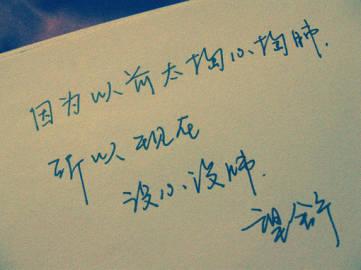 因为以前太掏心掏肺.
所以现在
没心没肺.